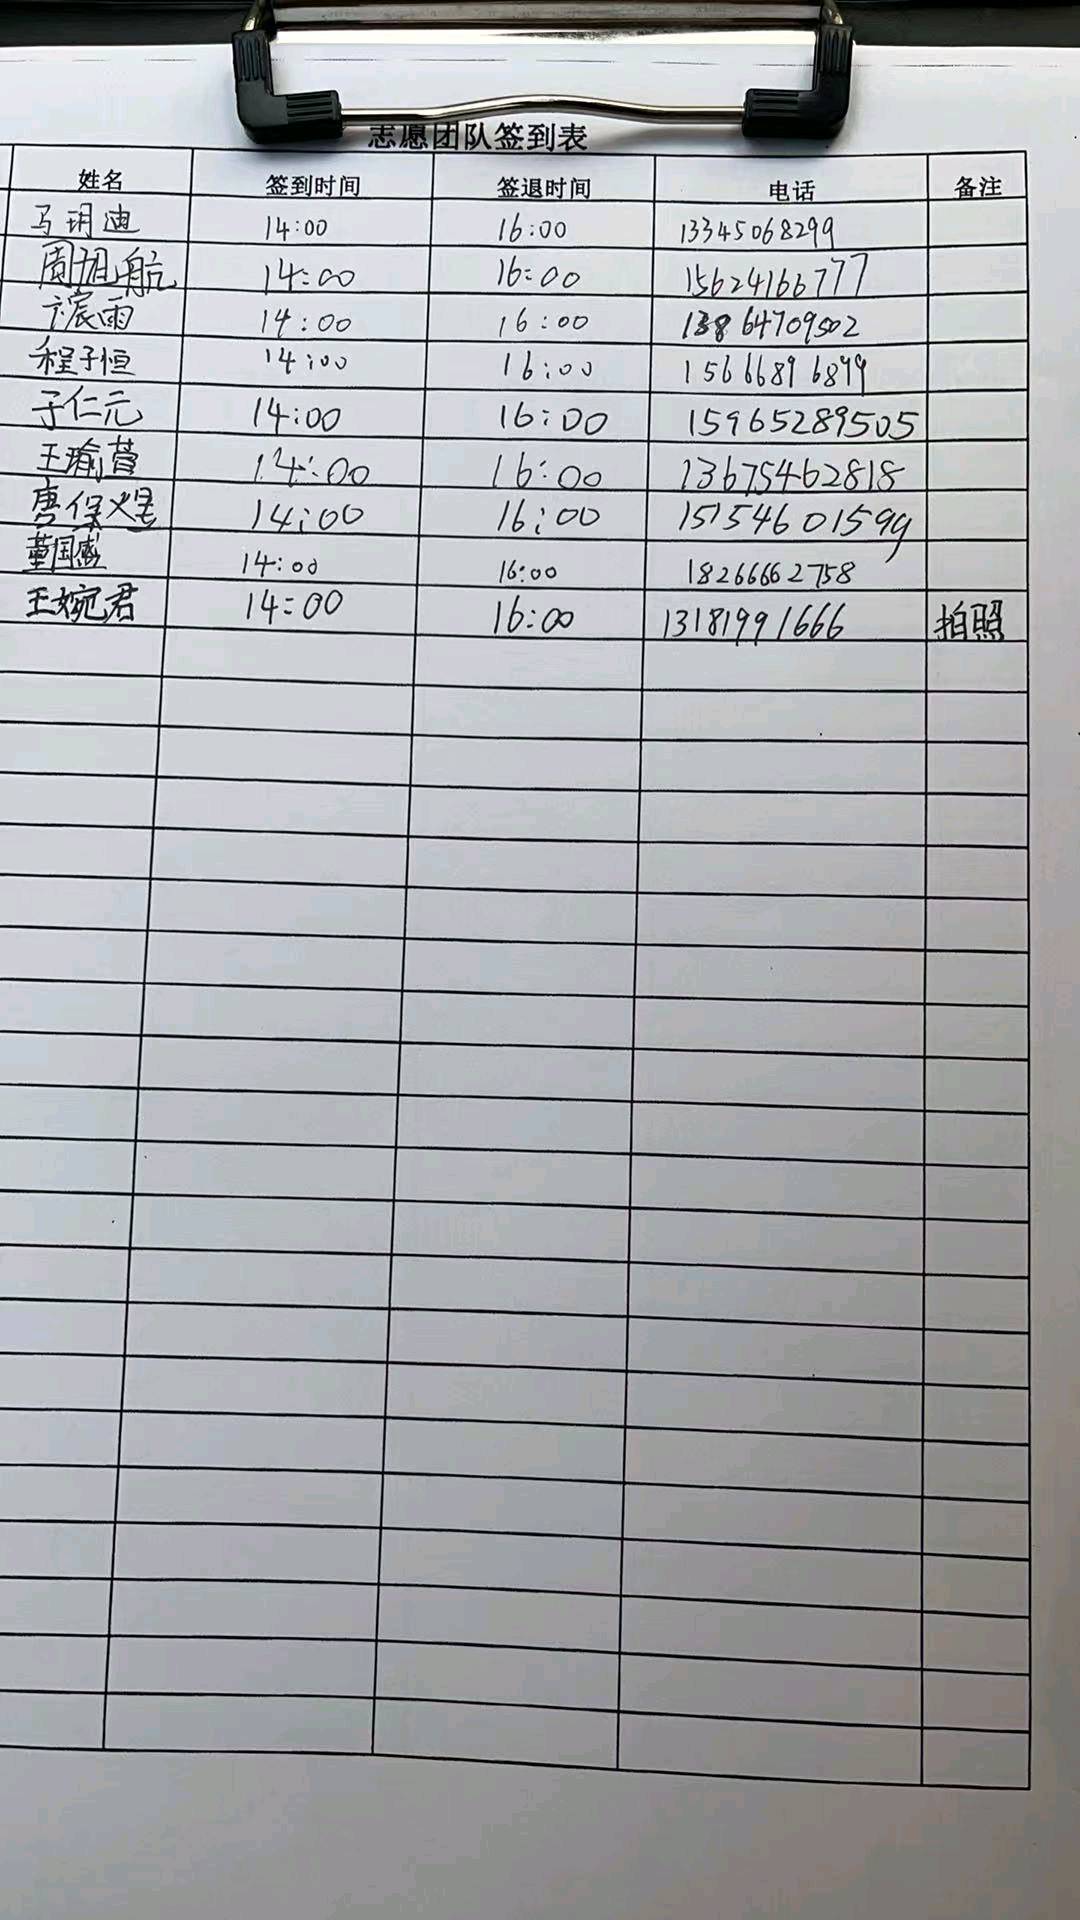 志愿团队签到表
姓名 签到时间 签退时间 电话 备注
马玥迪 14:00 16:00 13345068299
周旭航 14:00 16:00 15624166777
卞宸雨 14:00 16:00 13864709502
程子恒 14:00 16:00 15666896899
于仁元 14:00 16:00 15965289505
王瑜萱 14:00 16:00 13675462818
唐保煜 14:00 16:00 15154601599
董国盛 14:00 16:00 18266662758
王婉君 14:00 16:00 13181991666 拍照